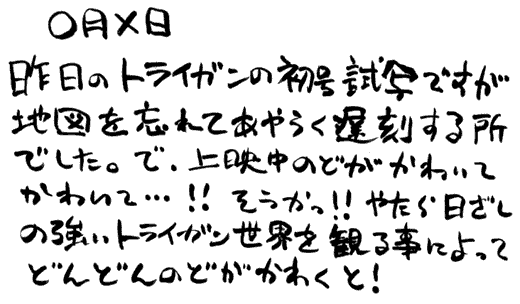 〇月×日
昨日のトライガンの初号試写ですが
地図を忘れてあやうく遅刻する所
でした。で、上映中のどがかわいて
かわいて…!! そうかっ!! やたら日ざし
の強いトライガン世界を観る事によって
どんどんのどがかわくと!